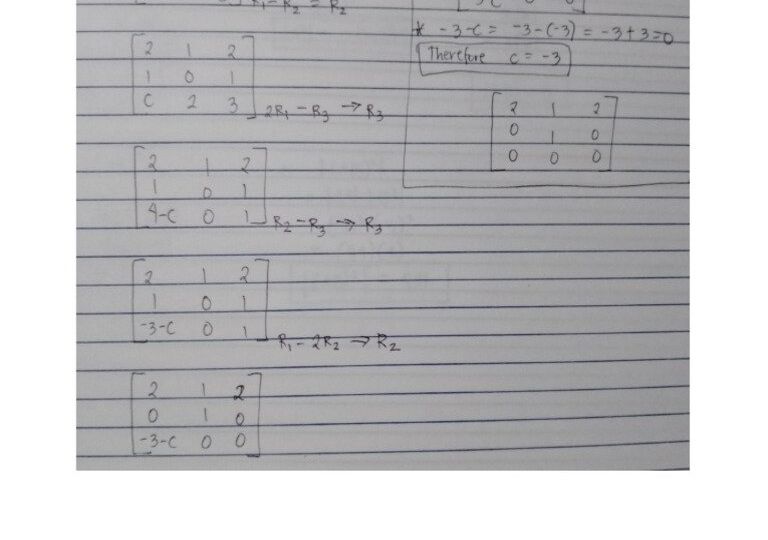 R1 - R2 = R2
2 1 2
1 0 1
C 2 3
2R1 - R3 → R3
2 1 2
1 0 1
4-C 0 1
R2 - R3 → R3
2 1 2
1 0 1
-3-C 0 1
R1 - 2R2 → R2
2 1 2
0 1 0
-3-C 0 0
* -3-C = -3-(-3) = -3+3=0
Therefore C = -3
2 1 2
0 1 0
0 0 0